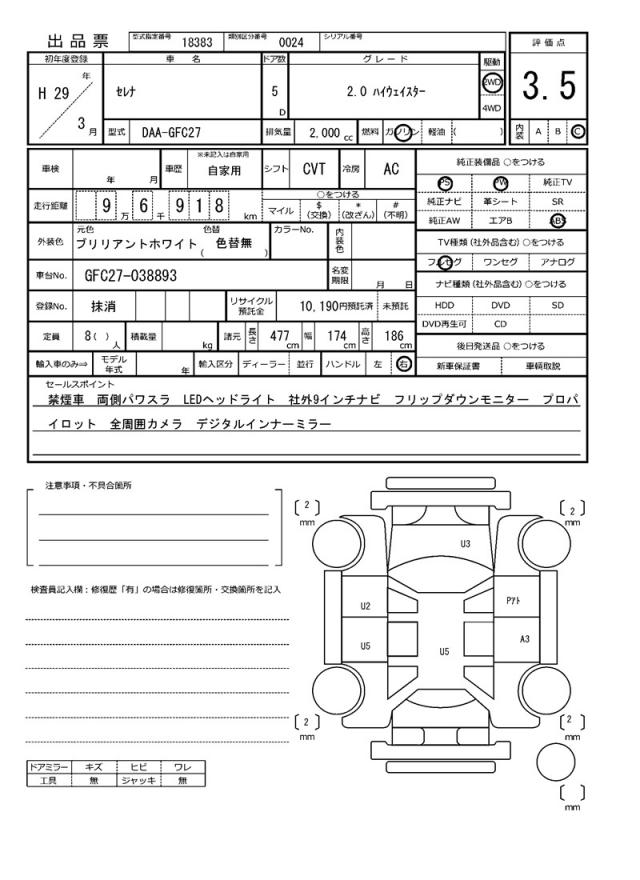 出品票 型式指定番号 18383 類別区分番号 0024 シリアル番号
評価点
3.5
内装 A B C
初年度登録 車名 ドア数 グレード 駆動
H 29 年 セレナ 5 D 2.0 ハイウェイスター 2WD
4WD
3 月 型式 DAA-GFC27 排気量 2,000 cc 燃料 ガソリン 軽油 ( )
車検 年 月 車歴 ※未記入は自家用 自家用 シフト CVT 冷房 AC
走行距離 9 万 6 千 9 1 8 km ○をつける
マイル $ (交換) * (改ざん) # (不明)
外装色 元色 ブリリアントホワイト 色替 ( 色替無 ) カラーNo. 内装色
車台No. GFC27-038893 名変期限 月 日
登録No. 抹消 リサイクル預託金 10,190円預託済 未預託
定員 8( ) 人 積載量 kg 諸元 長さ 477 cm 幅 174 cm 高さ 186 cm
輸入車のみ⇒ モデル年式 年 輸入区分 ディーラー 並行 ハンドル 左 右
純正装備品 ○をつける
PS PW 純正TV
純正ナビ 革シート SR
純正AW エアB ABS
TV種類 (社外品含む) ○をつける
フルセグ ワンセグ アナログ
ナビ種類 (社外品含む) ○をつける
HDD DVD SD
DVD再生可 CD
後日発送品 ○をつける
新車保証書 車輌取説
セールスポイント
禁煙車 両側パワスラ LEDヘッドライト 社外9インチナビ フリップダウンモニター プロパ
イロット 全周囲カメラ デジタルインナーミラー
注意事項・不具合箇所
検査員記入欄：修復歴「有」の場合は修復箇所・交換箇所を記入
ドアミラー キズ ヒビ ワレ
工具 無 ジャッキ 無
[ 2 ] mm
[ 2 ] mm
U3
U2
Pアト
U5
U5
A3
[ 2 ] mm
[ 2 ] mm
[ ] mm